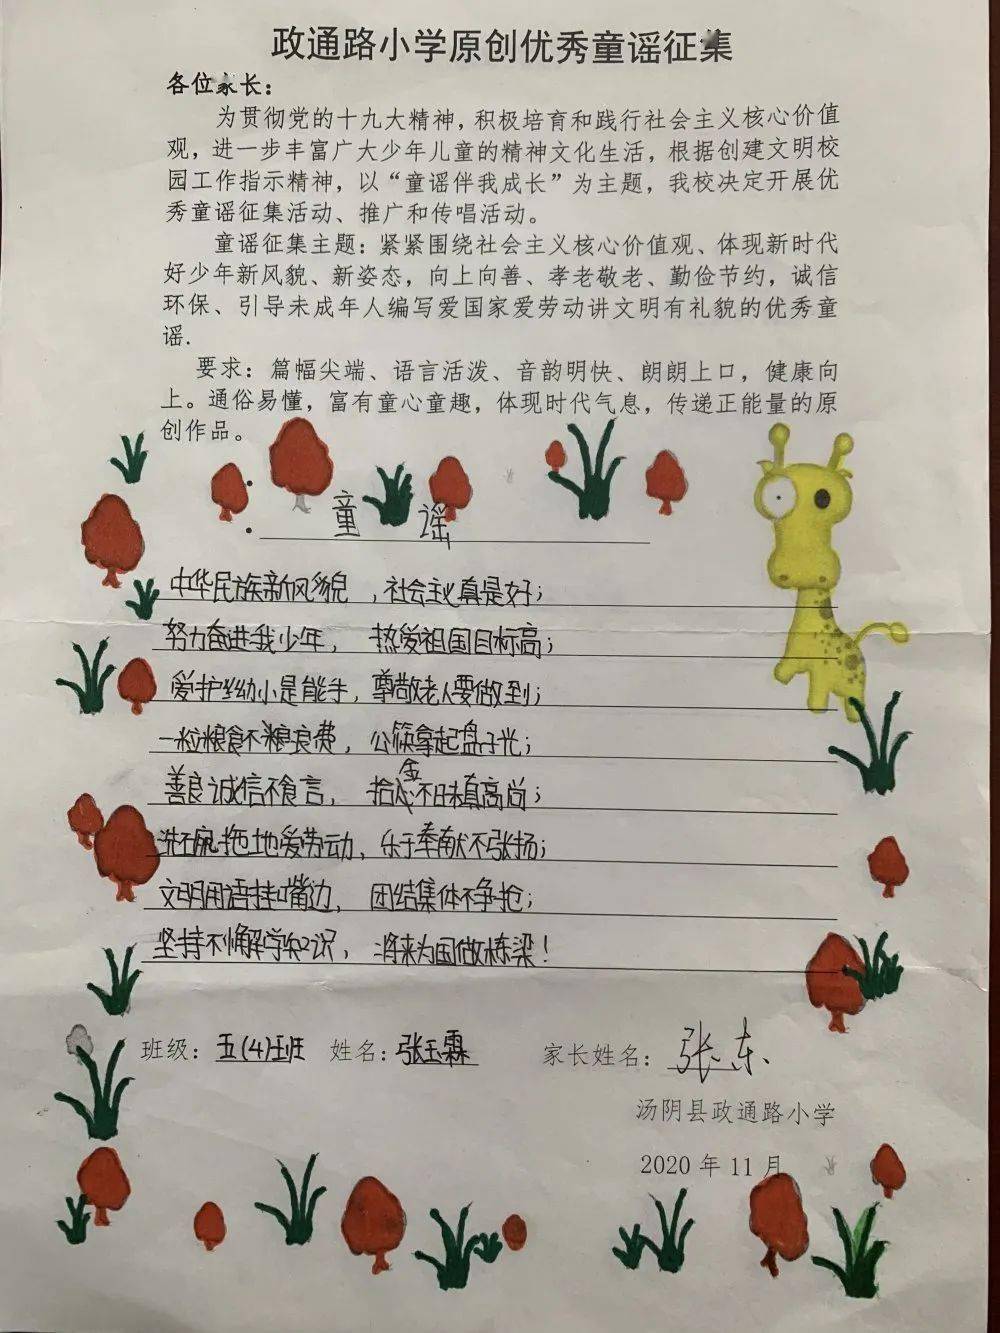 政通路小学原创优秀童谣征集
各位家长：
为贯彻党的十九大精神，积极培育和践行社会主义核心价值
观，进一步丰富广大少年儿童的精神文化生活，根据创建文明校
园工作指示精神，以“童谣伴我成长”为主题，我校决定开展优
秀童谣征集活动、推广和传唱活动。
童谣征集主题：紧紧围绕社会主义核心价值观、体现新时代
好少年新风貌、新姿态，向上向善、孝老敬老、勤俭节约，诚信
环保、引导未成年人编写爱国家爱劳动讲文明有礼貌的优秀童
谣.
要求：篇幅尖端、语言活泼、音韵明快、朗朗上口，健康向
上。通俗易懂，富有童心童趣，体现时代气息，传递正能量的原
创作品。
童谣
中华民族新风貌，社会主义真是好；
努力奋进我少年，热爱祖国目标高；
爱护幼小是能手，尊敬老人要做到；
一粒粮食不浪费，公筷拿起盘子光；
善良诚信不食言，拾金不昧真高尚；
洗碗拖地爱劳动，乐于奉献不张扬；
文明用语挂嘴边，团结集体不争抢；
坚持不懈学知识，将来为国做栋梁！
班级：五(4)班 姓名：张玉霖 家长姓名：张东
汤阴县政通路小学
2020年11月